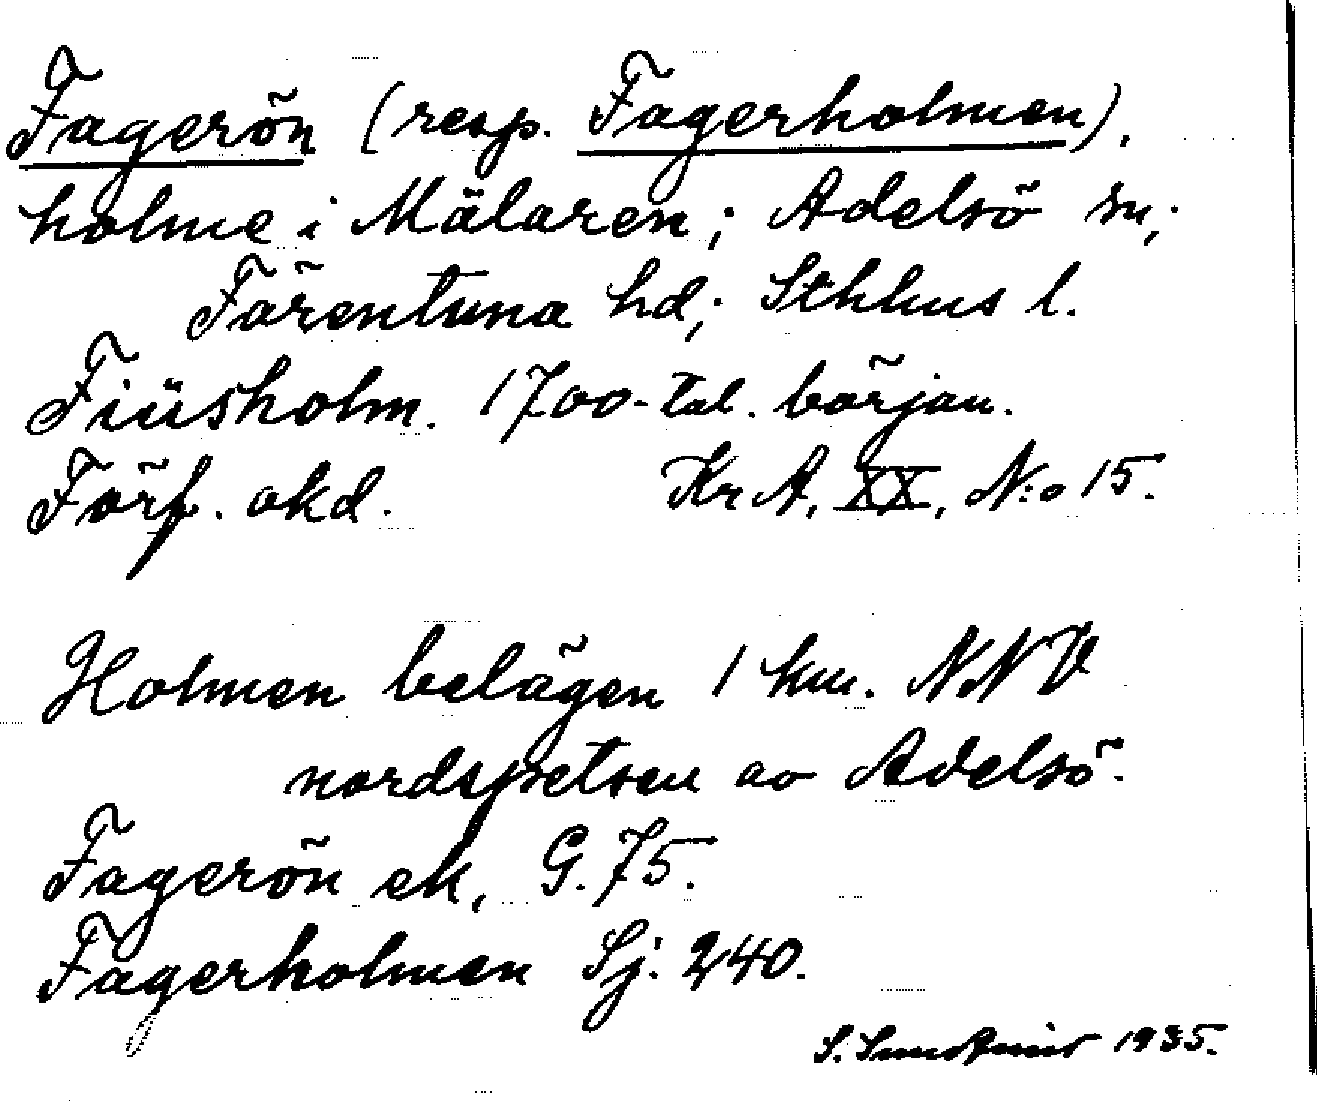 Fagerön (resp. Fagerholmen).
holme i Mälaren; Adelsö sn;
Färentuna hd; Sthlms l.
Fiüsholm. 1700-tal. början.
Förf. okd. Kr A. XX, N:o 15.
Holmen belägen 1 km. NNV
nordspetsen av Adelsö.
Fagerön ek, G. 75.
Fagerholmen Sj. 240.
S. 1935.